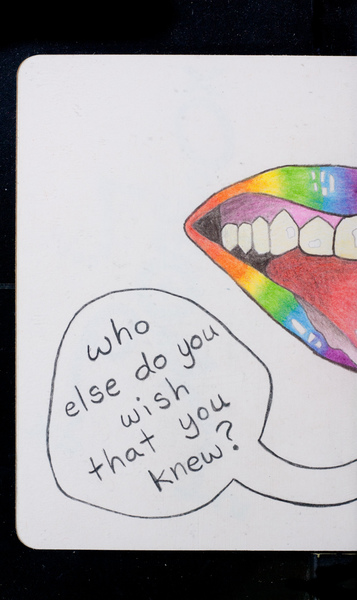 who
else do you
wish
that you
knew?